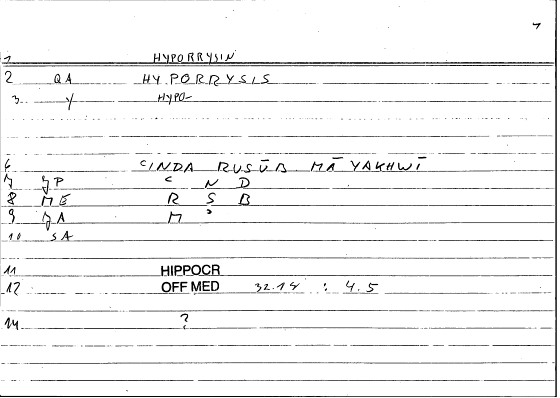 1 HYPORRYSIN
2 QA HYPORRYSIS
3 Y HYPO-
6 ʿINDA RUSŪB MĀ YAKHWĪ
7 JP ʿ N D
8 ME R S B
9 JA M ʾ
10 SA
11 HIPPOCR
12 OFF MED 32.14 : 4.5
14 ?